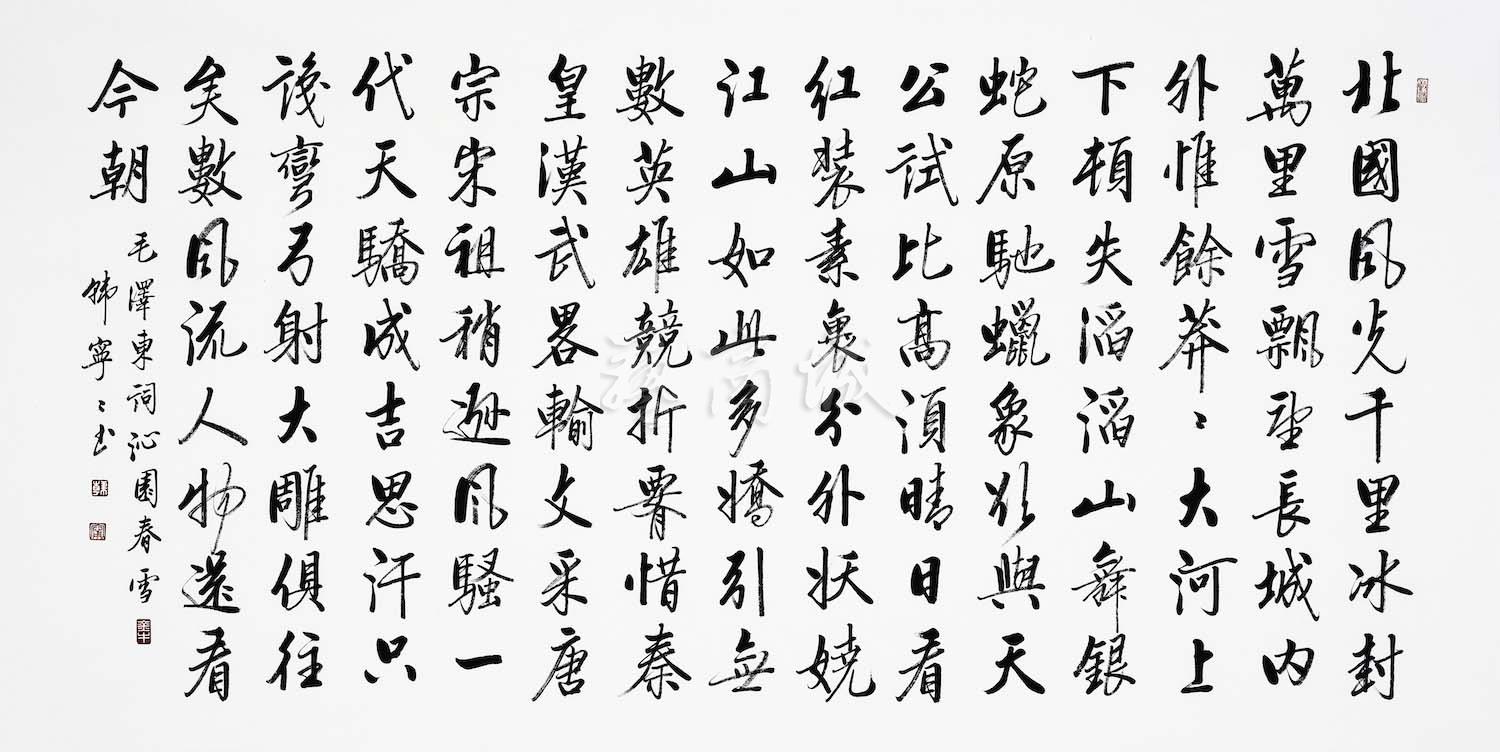 北國風光千里冰封
萬里雪飄望長城內
外惟餘莽〻大河上
下頓失滔滔山舞銀
蛇原馳蠟象欲與天
公試比高須晴日看
紅裝素裹分外妖嬈
江山如此多嬌引無
數英雄競折腰惜秦
皇漢武畧輸文采唐
宗宋祖稍遜風騷一
代天驕成吉思汗只
識彎弓射大雕俱往
矣數風流人物還看
今朝
毛澤東詞沁園春雪
韩寧〻书